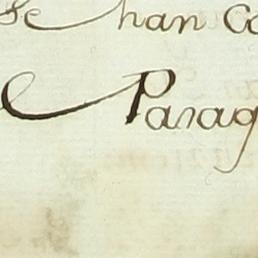 se han Co
Parag